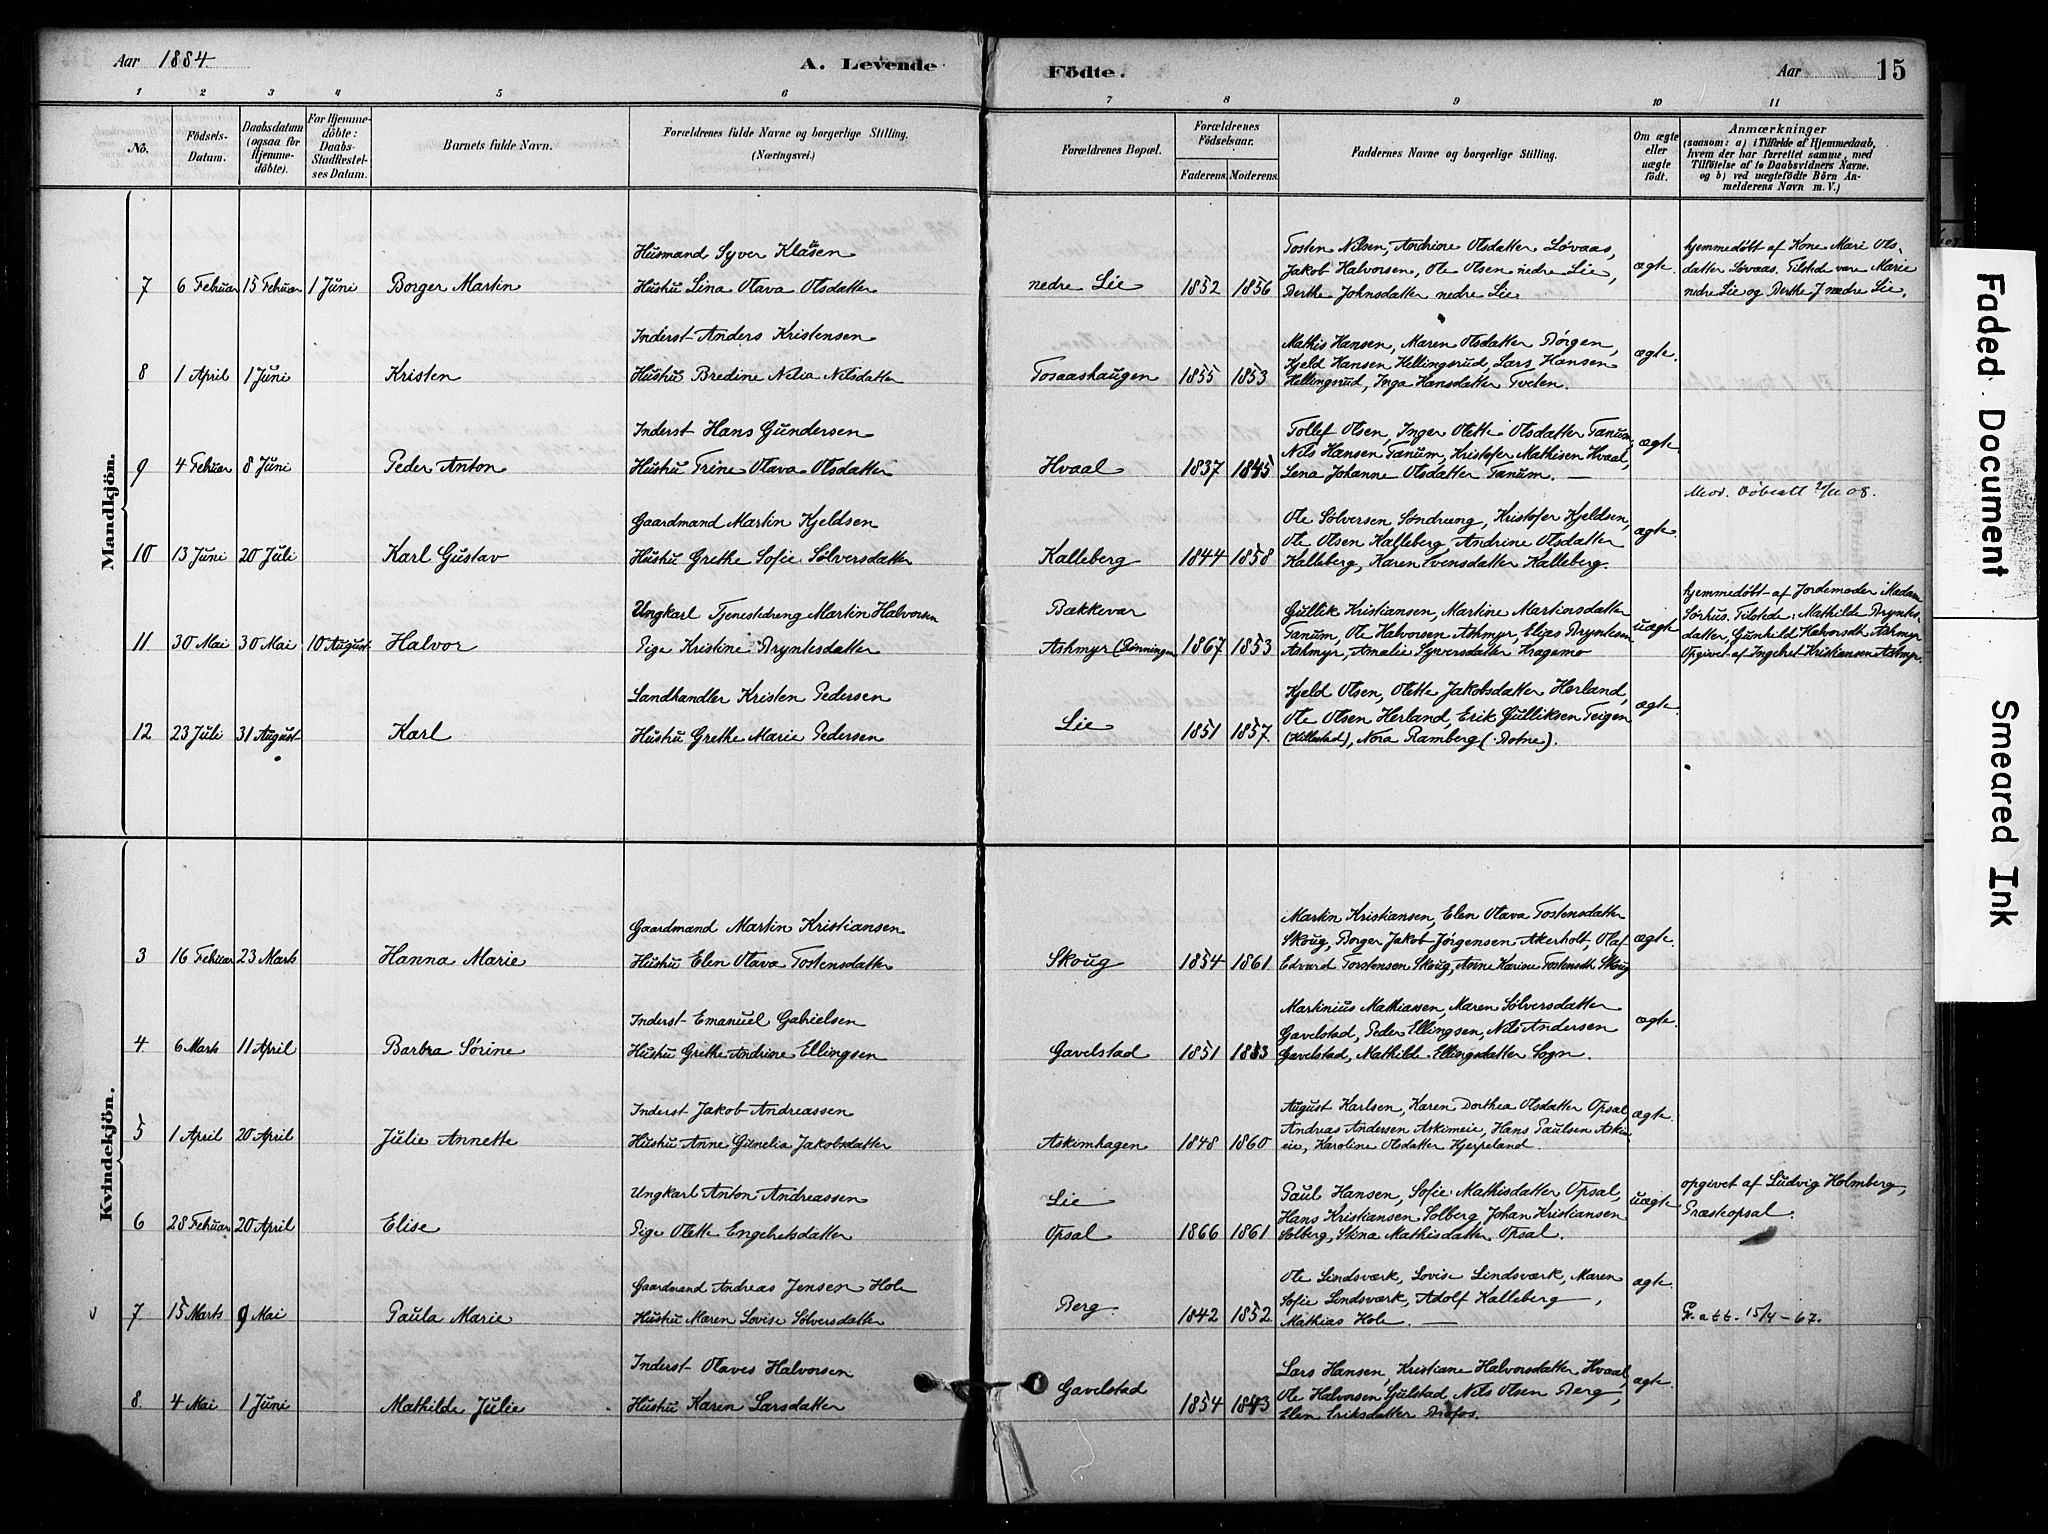 Aar 1884.
A. Levende
Födte.
Aar
15
1 2 3 4 5 6 7 8 9 10 11
No.
Födsels-Datum.
Daabsdatum (ogsaa for Hjemme-döbte).
For Hjemme-döbte: Daabs-Stadfæstel-ses Datum.
Barnets fulde Navn.
Forældrenes fulde Navne og borgerlige Stilling. (Næringsvei.)
Forældrenes Bopæl.
Forældrenes Födselsaar.
Faderens. Moderens.
Faddernes Navne og borgerlige Stilling.
Om ægte eller uægte födt.
Anmærkninger
(saasom: a) i Tilfælde af Hjemmedaab,
hvem der har forrettet samme, med
Tilföielse af to Daabsvidners Navne.
og b) ved uægtefödte Börn An-
melderens Navn m. V.)
Mandkjön.
Husmand Syver Klåsen
7 6 Februar 15 Februar 1 Juni Borger Martin Hustru Lina Olava Olsdatter
nedre Lie 1852 1856
Tosten Nilsen, Andrine Olsdatter Løvaas,
Jakob Halvorsen, Ole Olsen nedre Lie,
Berthe Johnsdatter nedre Lie
ægte.
hjemmedøbt af Kone Mari Ols-
datter Løvaas. Tilstede vare Marie
nedre Lie og Berthe J. nedre Lie.
Inderst Anders Kristensen
8 1 April 1 Juni Kristen Hustru Bredine Nilia Nilsdatter
Tosaashaugen 1855 1853
Mathis Hansen, Maren Olsdatter Børgen,
Kjeld Hansen Hellingsrud, Lars Hansen
Hellingsrud, Inga Hansdatter Tveten.
ægte.
Inderst Hans Gundersen
9 4 Februar 8 Juni Peder Anton Hustru Trine Olava Olsdatter
Hvaal 1837 1845
Tollef Olsen, Inger Olette Olsdatter Tanum,
Nils Hansen Tanum, Kristofer Mathisen Hvaal,
Lena Johanne Olsdatter Tanum.
ægte
Gaardmand Martin Kjeldsen
10 13 Juni 20 Juli Karl Gustav Hustru Grethe Sofie Sølversdatter
Kalleberg 1844 1858
Ole Sølversen Søndreng, Kristofer Kjeldsen,
Ole Olsen Kalleberg, Andrine Olsdatter
Kalleberg, Karen Evensdatter Kalleberg.
ægte.
Ungkarl Tjenestedreng Martin Halvorsen
11 30 Mai 30 Mai 10 August Halvor Pige Kristine Bryntesdatter
Bækkevar
Askmyr (Lønningen 1867 1853
Gullik Kristiansen, Martine Martinsdatter
Tanum, Ole Halvorsen Askmyr, Elias Bryntesen
Askmyr, Amalie Syversdatter Kragemo
uægte
hjemmedøbt af Jordemoder Madam
Sørhus. Tilstede: Mathilde Bryntes-
datter, Gunhild Halvorsdt Askmyr
Opgivet af Ingebret Kristiansen Askmyr.
Landhandler Kristen Pedersen
12 23 Juli 31 August Karl Hustru Grethe Marie Pedersen
Lie 1851 1857.
Kjeld Olsen, Olette Jakobsdatter Herland,
Ole Olsen Herland, Erik Gulliksen Teigen
(Hillestad), Nora Ramberg (Botne).
ægte.
Kvindekjön.
Gaardmand Martin Kristiansen
3 16 Februar 23 Marts Hanna Marie Hustru Elen Olava Tostensdatter
Skoug 1854 1861.
Martin Kristiansen, Elen Olava Tostensdatter
Skoug, Borger Jakob Jørgensen Akerholt, Olaf
Edvard Torstensen Skoug, Anne Karine Tostensdt Skoug
ægte.
Inderst Emanuel Gabrielsen
4. 6 Marts 11 April Barbra Sørine Hustru Grethe Andrine Ellingsen
Gavelstad 1851
Martinius Mathiassen, Maren Sølversdatter
Gavelstad, Peder Ellingsen, Nils Andersen
Gavelstad, Mathilde Ellingsdatter Sogn.
ægte.
Inderst Jakob Andreassen
5 1 April 20 April Julie Annette Hustru Anne Gunelia Jakobsdatter
Askimhagen 1848 1860
August Karlsen, Karen Dorthea Olsdatter Opsal,
Andreas Andersen Askimeie, Hans Paulsen Askim-
eie, Karoline Olsdatter Hjerpeland.
ægte.
Ungkarl Anton Andreassen
6 28 Februar 20 April Elise Pige Olette Engebretsdatter
Lie
Opsal 1866 1861
Paul Hansen, Sofie Mathisdatter Opsal,
Hans Kristiansen Solberg, Johan Kristiansen
Solberg, Stina Mathisdatter Opsal.
uægte
opgivet af Ludvig Holmberg,
Præsteopsal.
Gaardmand Andreas Jensen Hole
7 15 Marts 9 Mai Paula Marie Hustru Maren Lovise Sølversdatter
Berg 1842 1852
Ole Lindsværk, Lovise Lindsværk, Maren
Sofie Lindsværk, Adolf Kalleberg,
Mathias Hole.
ægte.
Pr. att. 15/4-67.
Inderst Olaves Halvorsen
8. 4 Mai 1 Juni Mathilde Julie Hustru Karen Larsdatter
Gavelstad 1854 1843
Lars Hansen, Kristiane Halvorsdatter Hvaal,
Ole Halvorsen Gjulstad, Nils Olsen Berg,
Elen Eriksdatter Brofos.
ægte.
Faded Document Smeared Ink